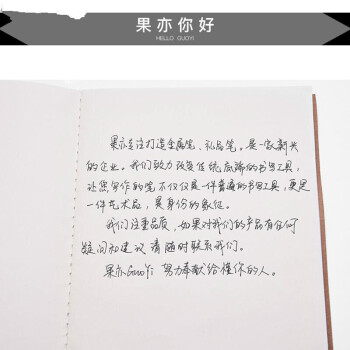 果亦你好
HELLO GUOYI
果亦专注打造金属笔、礼品笔。是一家新兴
的企业。我们致力改变传统底端的书写工具,
让您写作的笔不仅仅是一件普通的书写工具,更是
一件艺术品,是身份的象征。
我们注重品质、如果对我们的产品有任何
疑问和建议请随时联系我们。
果亦GuoYi: 努力奉献给懂你的人。